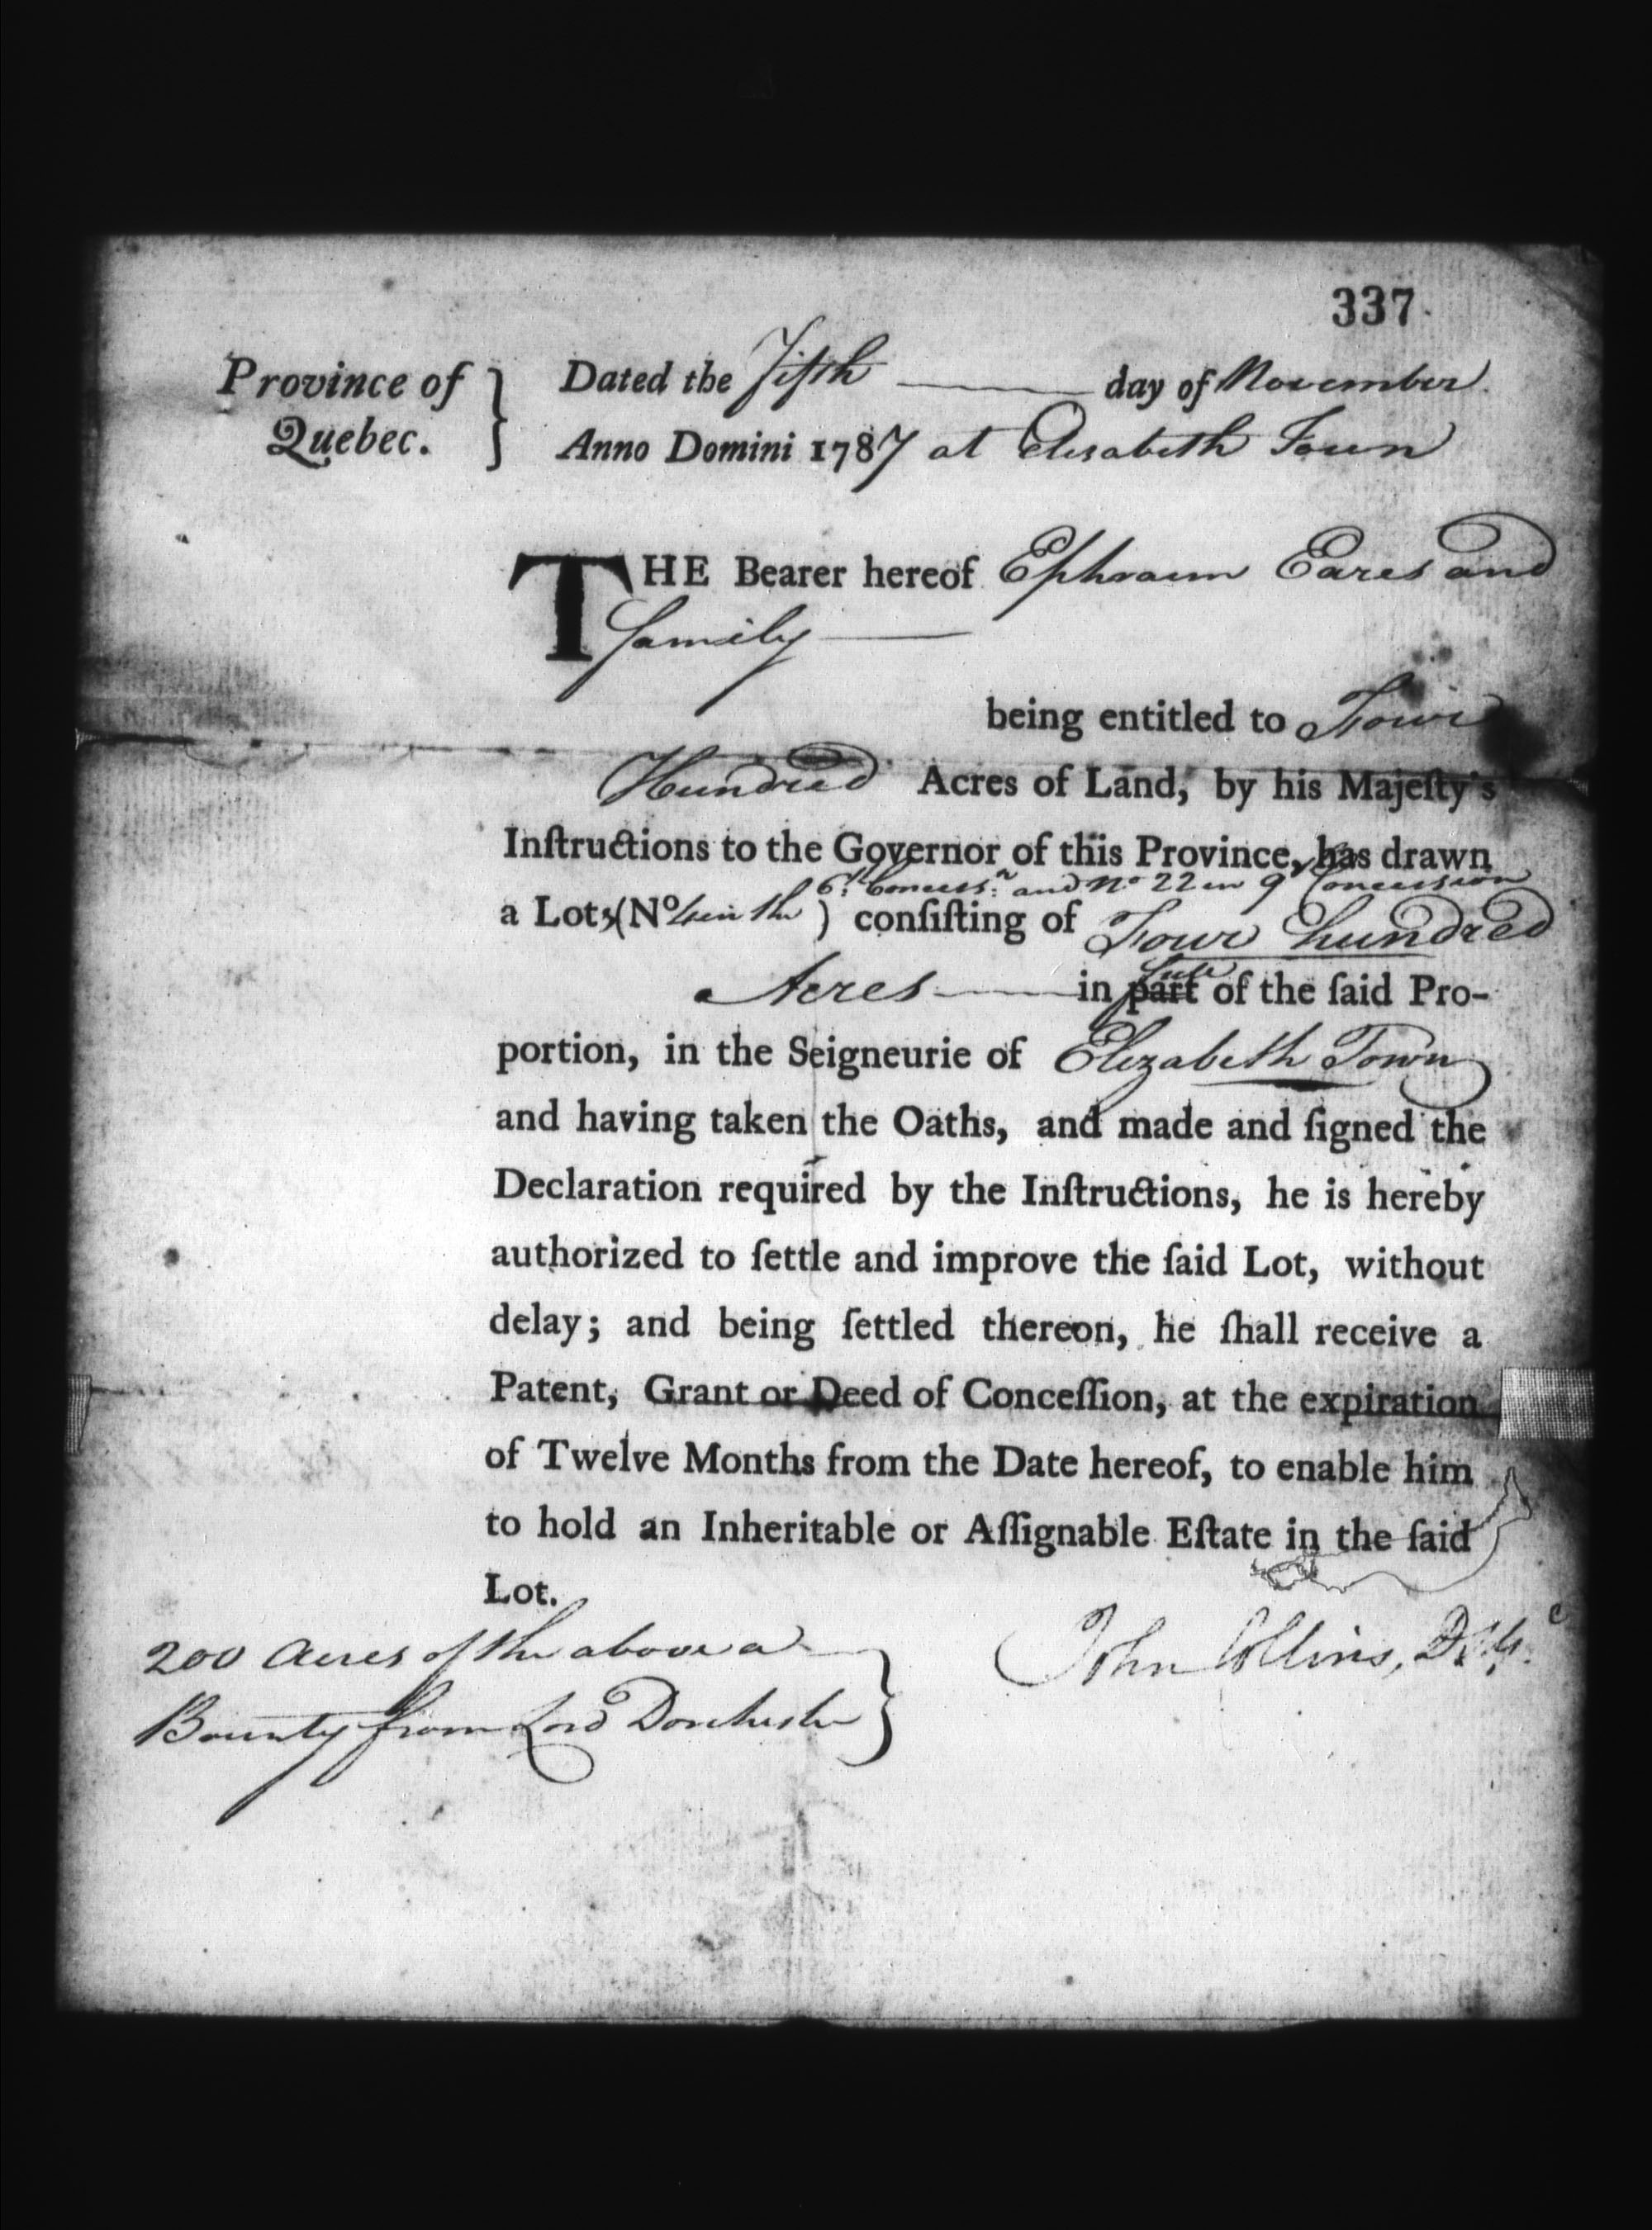 337.
Province of Quebec. } Dated the Fifth day of November
Anno Domini 1787 at Elisabeth Town
THE Bearer hereof Ephraim Eares and
family
being entitled to Four
Hundred Acres of Land, by his Majeſty's
Inſtructions to the Governor of this Province, has drawn
6th Concessn and No 22 in 9 Concession
a Lots (No in the ) conſiſting of Four hundred
Acres in part full of the ſaid Pro-
portion, in the Seigneurie of Elizabeth Town
and having taken the Oaths, and made and ſigned the
Declaration required by the Inſtructions, he is hereby
authorized to ſettle and improve the ſaid Lot, without
delay; and being ſettled thereon, he ſhall receive a
Patent, Grant or Deed of Conceſſion, at the expiration
of Twelve Months from the Date hereof, to enable him
to hold an Inheritable or Aſſignable Eſtate in the ſaid
Lot.
200 Acres of the above a
Bounty from Lord Dorchester }
John Collins, D.S.G.